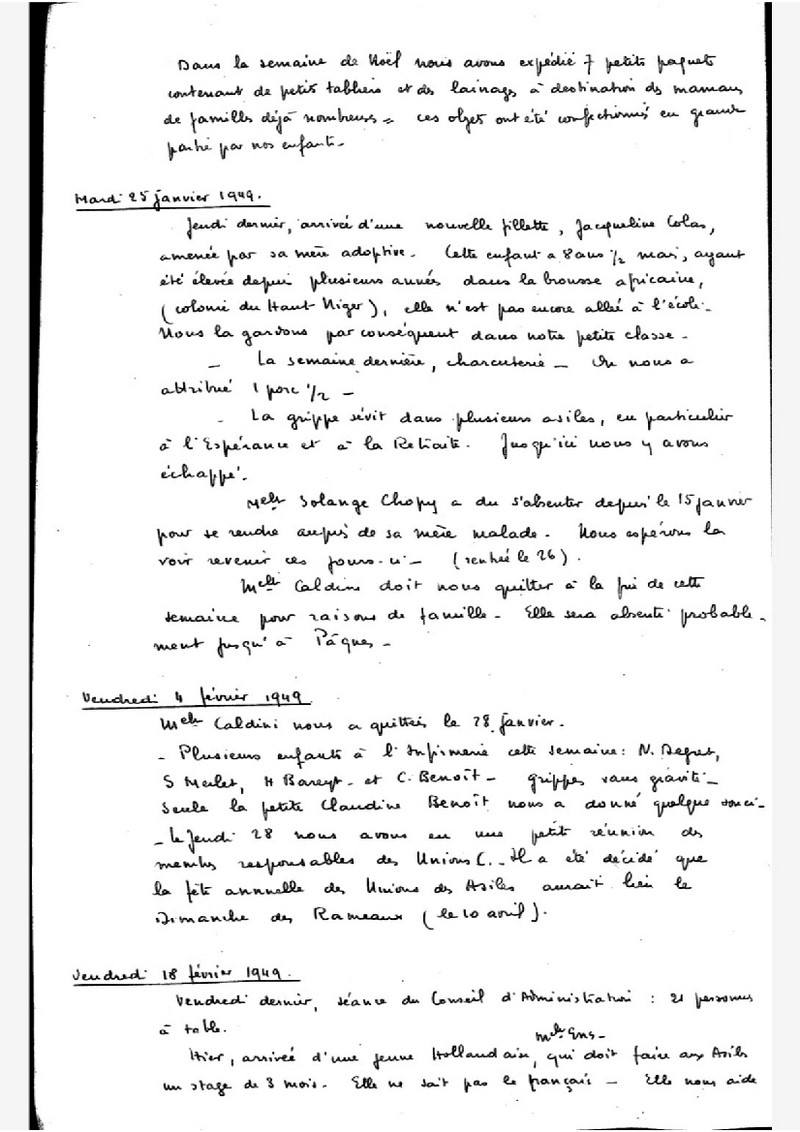 Dans la semaine de Noël nous avons expédié 7 petits paquets
contenant de petits tabliers et des lainages à destination des mamans
de familles déjà nombreuses = ces objets ont été confectionnés en grande
partie par nos enfants -
Mardi 25 janvier 1949.
Jeudi dernier, arrivée d'une nouvelle fillette, Jacqueline Colas,
amenée par sa mère adoptive. Cette enfant a 8 ans 1/2 mais, ayant
été élevée depuis plusieurs années dans la brousse africaine,
(colonie du Haut-Niger), elle n'est pas encore allée à l'école.
Nous la gardons par conséquent dans notre petite classe -
- La semaine dernière, charcuterie - On nous a
attribué 1 porc 1/2 -
- La grippe sévit dans plusieurs asiles, en particulier
à l'Espérance et à la Retraite. Jusqu'ici nous y avons
échappé.
Melle Solange Chopy a du s'absenter depuis le 15 janvier
pour se rendre auprès de sa mère malade. Nous espérons la
voir revenir ces jours-ci - (rentrée le 26).
Melle Caldini doit nous quitter à la fin de cette
semaine pour raisons de famille - Elle sera absente probable-
ment jusqu'à Pâques -
Vendredi 4 février 1949
Melle Caldini nous a quittés le 28 janvier.
- Plusieurs enfants à l'Infirmerie cette semaine : N. Degret,
S Merlet, H Bareyt - et C. Benoît - grippes sans gravité -
Seule la petite Claudine Benoît nous a donné quelque souci -
- Le Jeudi 28 nous avons eu une petite réunion des
membres responsables des Unions C. - Il a été décidé que
la fête annuelle des Unions des Asiles aurait lieu le
Dimanche des Rameaux (le 10 avril).
Vendredi 18 février 1949.
Vendredi dernier, séance du Conseil d'Administration : 21 personnes
à table.
Melle Ens -
Hier, arrivée d'une jeune Hollandaise, qui doit faire aux Asiles
un stage de 3 mois. Elle ne sait pas le français - Elle nous aide